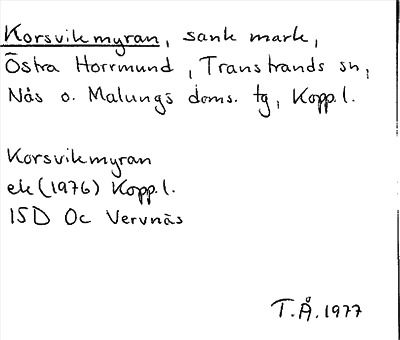 Korsvikmyran, sank mark,
Östra Horrmund, Transtrands sn,
Nås o. Malungs doms. tg, Kopp.l.
Korsvikmyran
ek (1976) Kopp.l.
15D Oc Vervnäs
T.Å. 1977